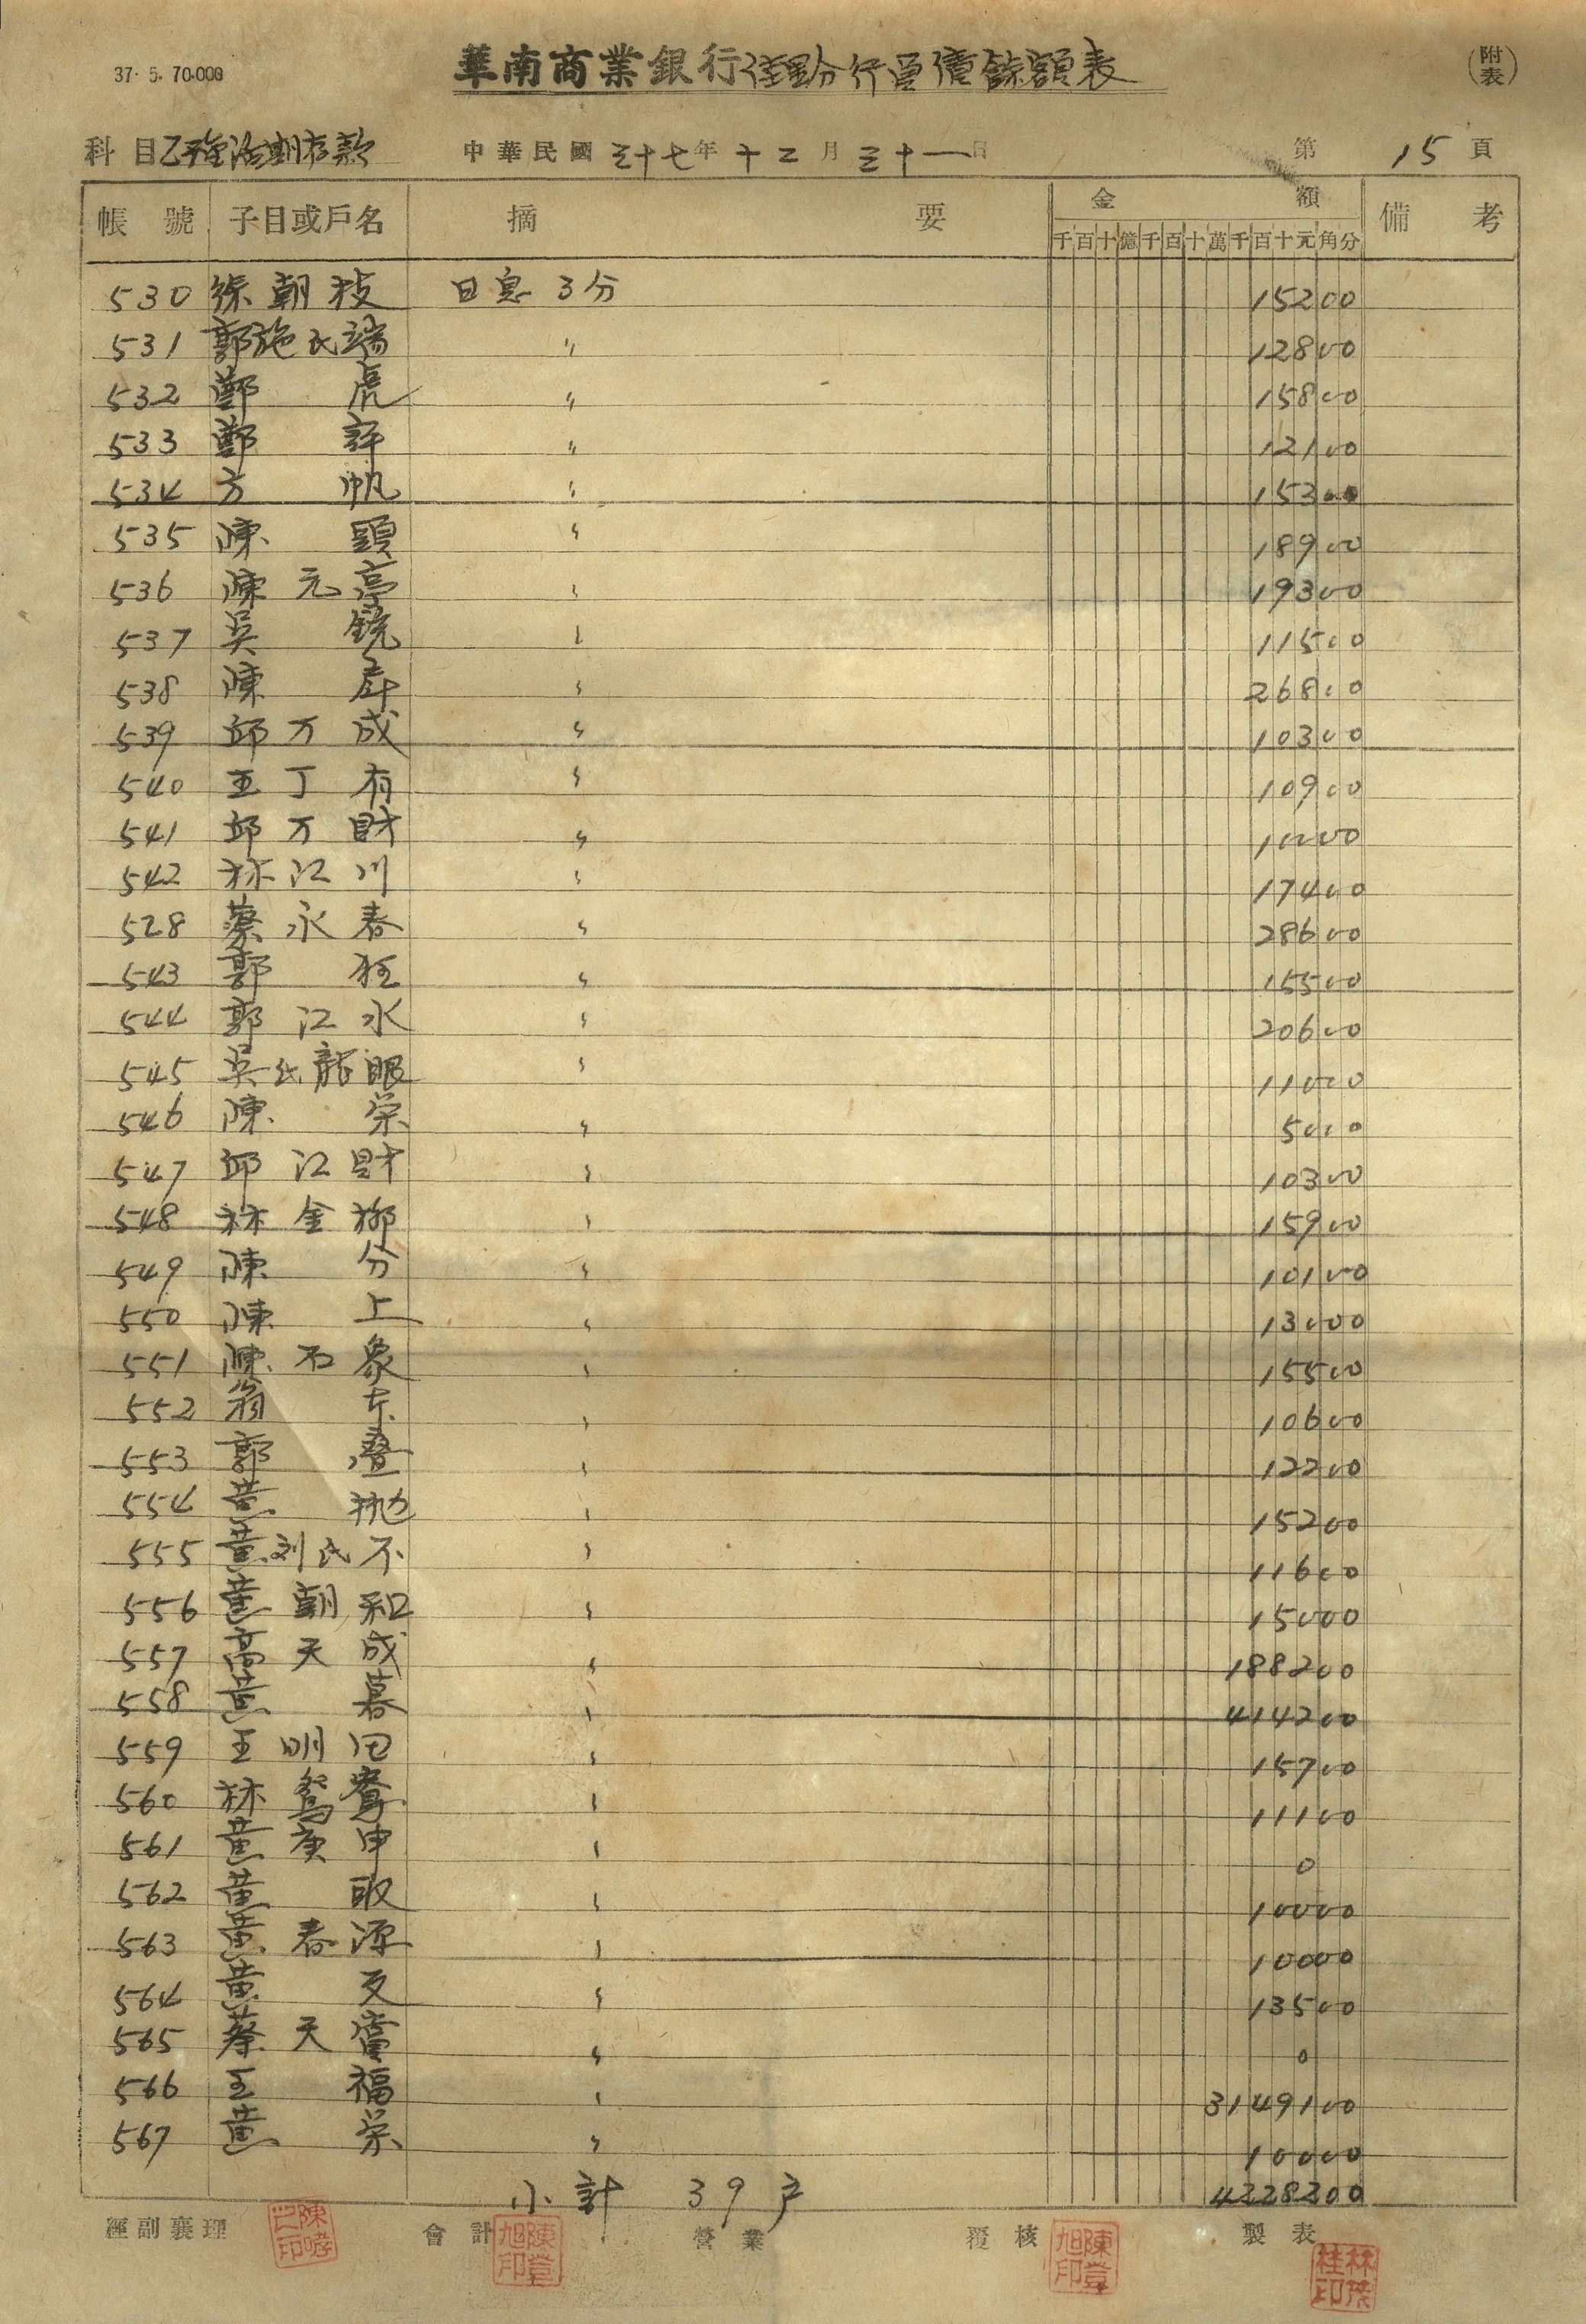 37. 5. 70.000
華南商業銀行佳里分行負債餘額表
(附表)
科目 乙種活期存款 中華民國 三十七年 十二月 三十一日 第 15 頁
帳號 子目或戶名 摘要 金額 備考
千百十億千百十萬千百十元角分
530 徐朝枝 日息 3分 15200
531 郭施氏端 〃 12800
532 鄭 虎 〃 15800
533 鄭 許 〃 12100
534 方 帆 〃 15300
535 陳 頭 〃 18900
536 陳元亭 〃 19300
537 吳 鏡 〃 11500
538 陳 〃 26800
539 邱万成 〃 10300
540 王丁有 〃 10900
541 邱万財 〃 10000
542 林江川 〃 17400
528 蔡永春 〃 28600
543 郭 狂 〃 15500
544 郭江水 〃 20600
545 吳氏龍眼 〃 11000
546 陳 栄 〃 5000
547 邱江財 〃 10300
548 林金柳 〃 15900
549 陳 分 〃 10100
550 陳 上 〃 13000
551 陳石象 〃 15500
552 翁 〃 10600
553 郭 〃 12200
554 黃 抛 〃 15200
555 黃刘氏不 〃 11600
556 黃朝和 〃 15000
557 高天成 〃 188200
558 黃 暮 〃 414200
559 王明田 〃 15700
560 林鴛鴦 〃 11100
561 黃庚申 〃 0
562 黃 取 〃 10000
563 黃春源 〃 10000
564 黃 反 〃 13500
565 蔡天當 〃 0
566 王 福 〃 3149100
567 黃 栄 〃 10000
小計 39户 4228200
經副襄理 會計 營業 覆核 製表
陳登旭印 陳登旭印 林茂桂印